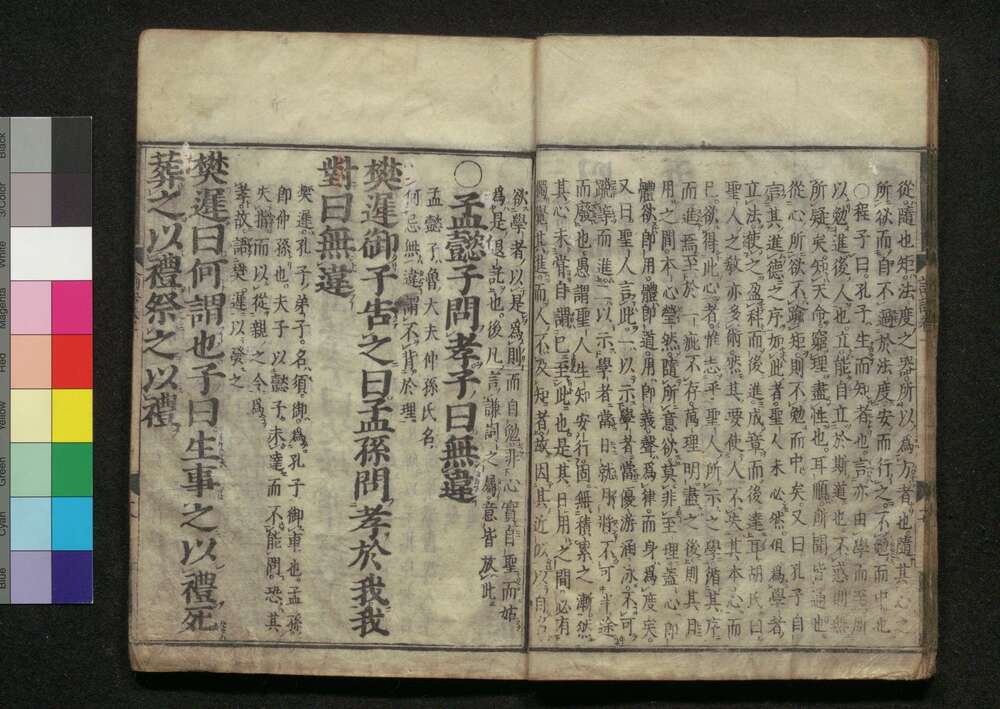 從隨也矩法度之器所以為方者也隨其心之
所欲而自不過於法度安而行之不勉而中也
○程子曰孔子生而知者也言亦由學而至所
以勉進後人也立能自立於斯道也不惑則無
所疑矣知天命窮理盡性也耳順所聞皆通也
從心所欲不踰矩則不勉而中矣又曰孔子自
言其進德之序如此者聖人未必然但為學者
立法使之盈科而後進成章而後達耳胡氏曰
聖人之教亦多術然其要使人不失其本心而
已欲得此心者惟志乎聖人所示之學循其序
而進焉至於一疵不存萬理明盡之後則其日
用之間本心瑩然隨所意欲莫非至理蓋心即
體欲即用體即道用即義聲為律而身為度矣
又曰聖人言此一以示學者當優游涵泳不可
躐等而進二以示學者當日就月將不可半途
而廢也愚謂聖人生知安行固無積累之漸然
其心未嘗自謂已至此也是其日用之間必有
獨覺其進而人不及知者故因其近似以自名
欲學者以是為則而自勉非心實自聖而姑
為是退託也後凡言謙詞之屬意皆放此
○孟懿子問孝子曰無違
孟懿子魯大夫仲孫氏名
何忌無違謂不背於理
樊遲御子告之曰孟孫問孝於我我
對曰無違
樊遲孔子弟子名須御為孔子御車也孟孫
即仲孫也夫子以懿子未達而不能問恐其
失指而以從親之令為
孝故語樊遲以發之
樊遲曰何謂也子曰生事之以禮死
葬之以禮祭之以禮
Black
3/Color
White
Magenta
Red
Yellow
Green
Cyan
Blue